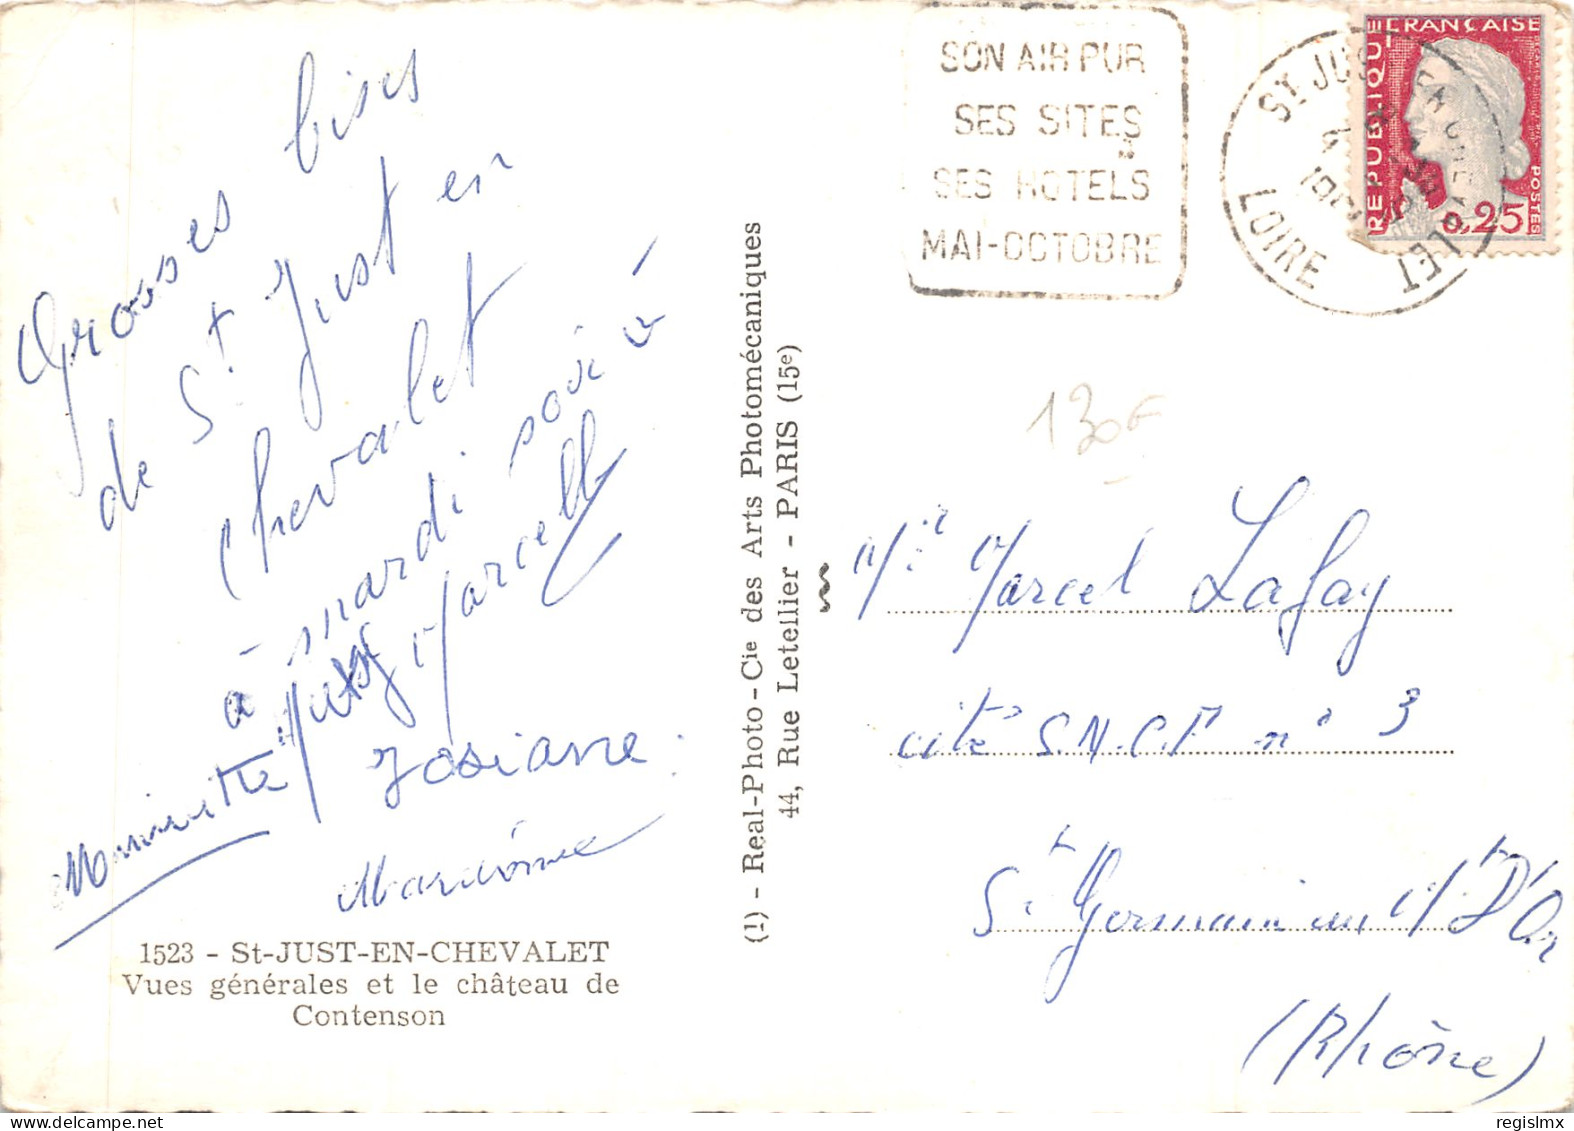 Grosses bises
de St Just en
Chevalet
à mardi soir
Marcelle
Josiane.
1523 - St-JUST-EN-CHEVALET
Vues générales et le château de
Contenson
(1) - Real-Photo - Cie des Arts Photomécaniques
44, Rue Letellier - PARIS (15e)
SON AIR PUR
SES SITES
SES HOTELS
MAI-OCTOBRE
ST JUST EN CHEVALET
LOIRE
REPUBLIQUE FRANÇAISE
POSTES
0,25
130F
Marcel Lafay
cité S.N.C.F. n° 3
St Germain au Mt D'Or
(Rhône)
regislmx